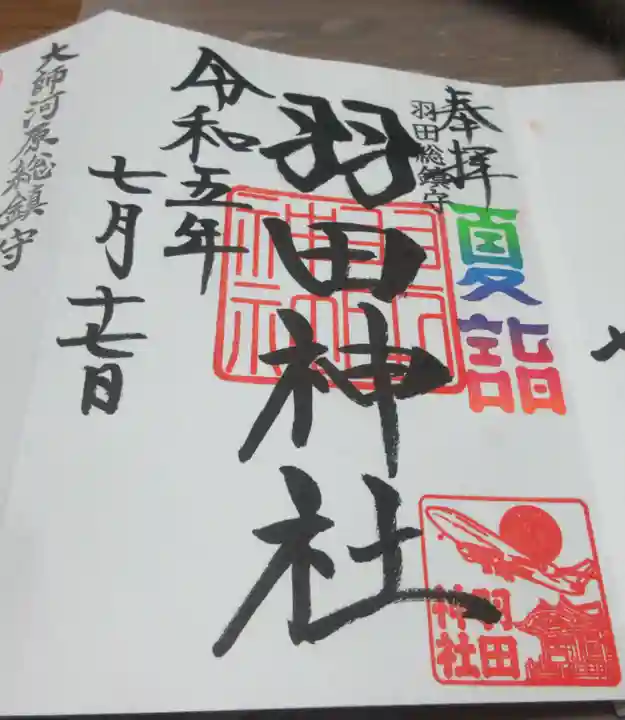 奉拝
羽田総鎮守
夏詣
羽田神社
令和五年
七月十七日
羽田
神社
大師河原総鎮守